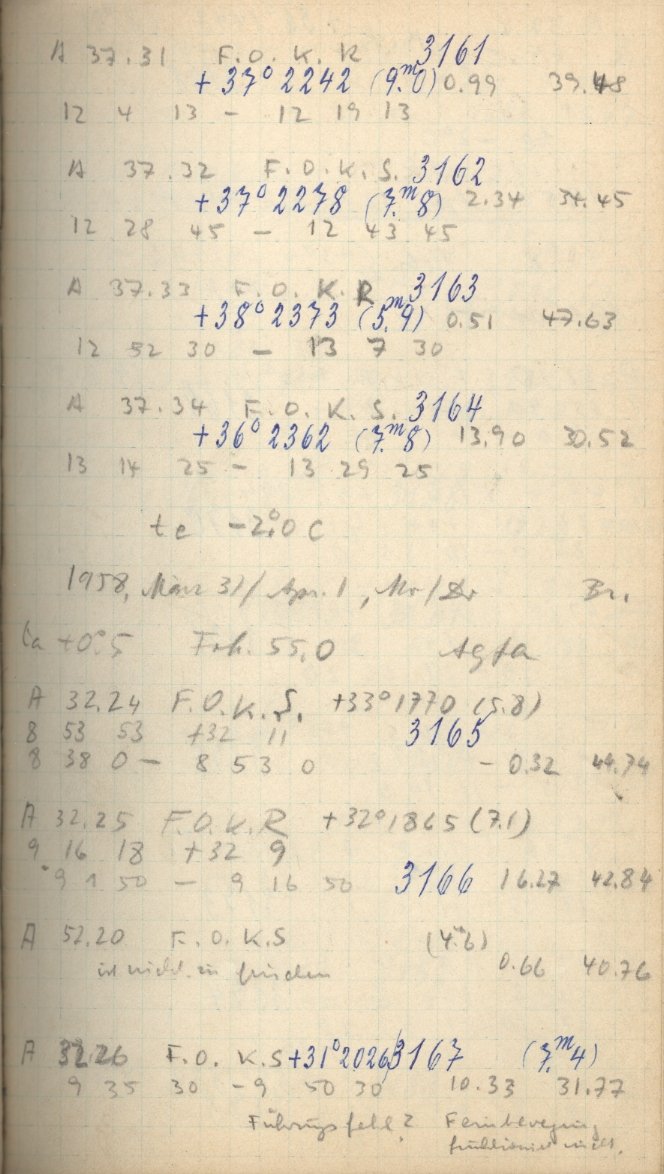 A 37.31 F.O.K.R 3161
+37° 2242 (9.ᵐ0) 0.99 39.48
12 4 13 – 12 19 13
A 37.32 F.O.K.S. 3162
+37° 2278 (7.ᵐ8) 2.34 34.45
12 28 45 – 12 43 45
A 37.33 F.O.K.R 3163
+38° 2373 (5.ᵐ9) 0.51 47.63
12 52 30 – 13 7 30
A 37.34 F.O.K.S. 3164
+36° 2362 (7.ᵐ8) 13.90 30.52
13 14 25 – 13 29 25
te –2.°0 C
1958, März 31/Apr. 1, Br.
Ca +0.°5 Fok. 55,0 Agfa
A 32.24 F.O.K.S. +33° 1770 (5.8)
8 53 53 +32 11 3165
8 38 0 – 8 53 0 – 0.32 44.74
A 32.25 F.O.K.R +32° 1865 (7.1)
9 16 18 +32 9
9 1 50 – 9 16 50 3166 16.27 42.84
A 52.20 F.O.K.S (4.ᵐ6)
ist nicht zu finden 0.66 40.76
A 32.26 F.O.K.S +31° 2026 3167 (7.ᵐ4)
9 35 30 – 9 50 30 10.33 31.77
Führungsfehl? Feinbewegung
funktioniert nicht.